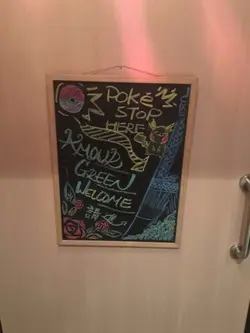 POKÉ
STOP
HERE
AMOUD
GREEN
WELCOME
請